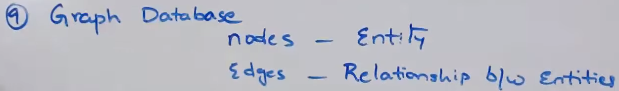 ⑨ Graph Database
nodes – Entity
Edges – Relationship b/w Entities